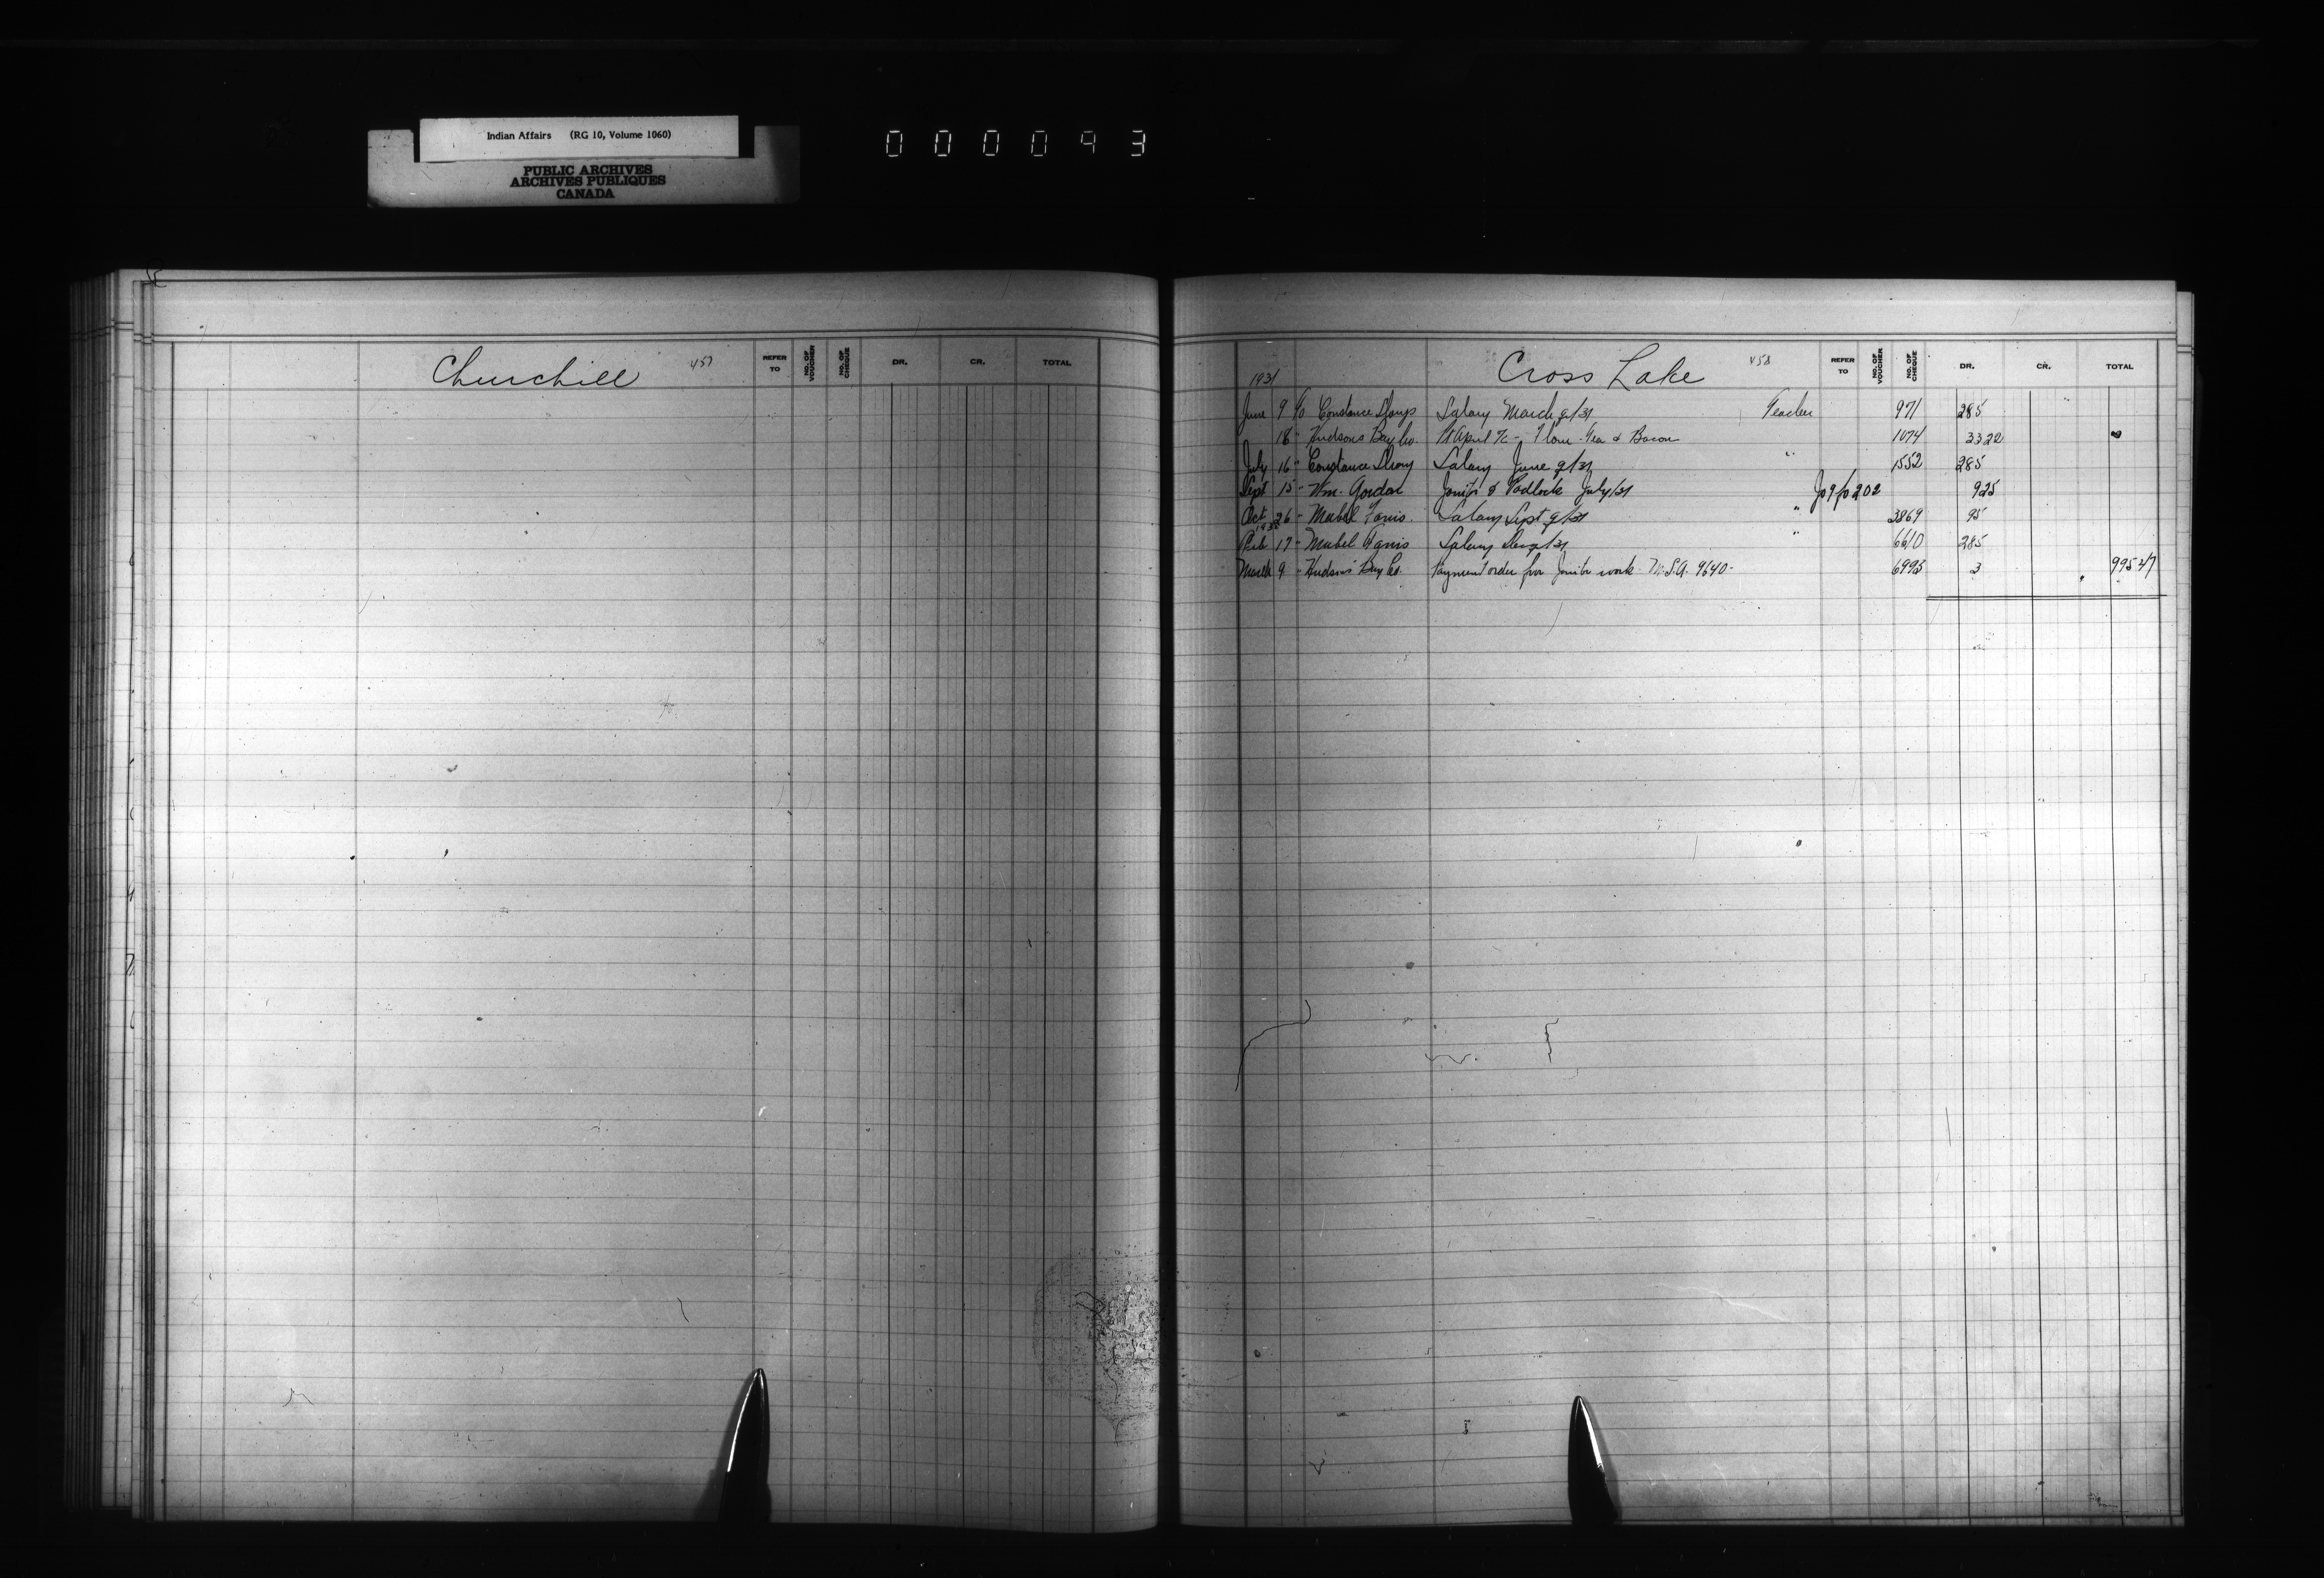 Indian Affairs (RG 10, Volume 1060)
PUBLIC ARCHIVES
ARCHIVES PUBLIQUES
CANADA
000093
Churchill 457
REFER TO NO. OF VOUCHER NO. OF CHEQUE DR. CR. TOTAL
Cross Lake 458
REFER TO NO. OF VOUCHER NO. OF CHEQUE DR. CR. TOTAL
1931
June 9 Constance Salary March q/31 Teacher 971 285
18 - Hudsons Bay Co. April - Flour Tea & Bacon 1074 33 22
July 16 " Constance Salary June q/31 " 1552 285
Sept 15 - Wm. Gordon & Padlock July/31 Jo 9 fo 202 9 25
Oct 26 - Mabel Salary Sept q/31 " 3869 95
1932
Feb 17 - Mabel Salary Dec q/31 " 6610 285
March 9 - Hudsons Bay Co. Payment order for work 9640 - 6993 3 995 47